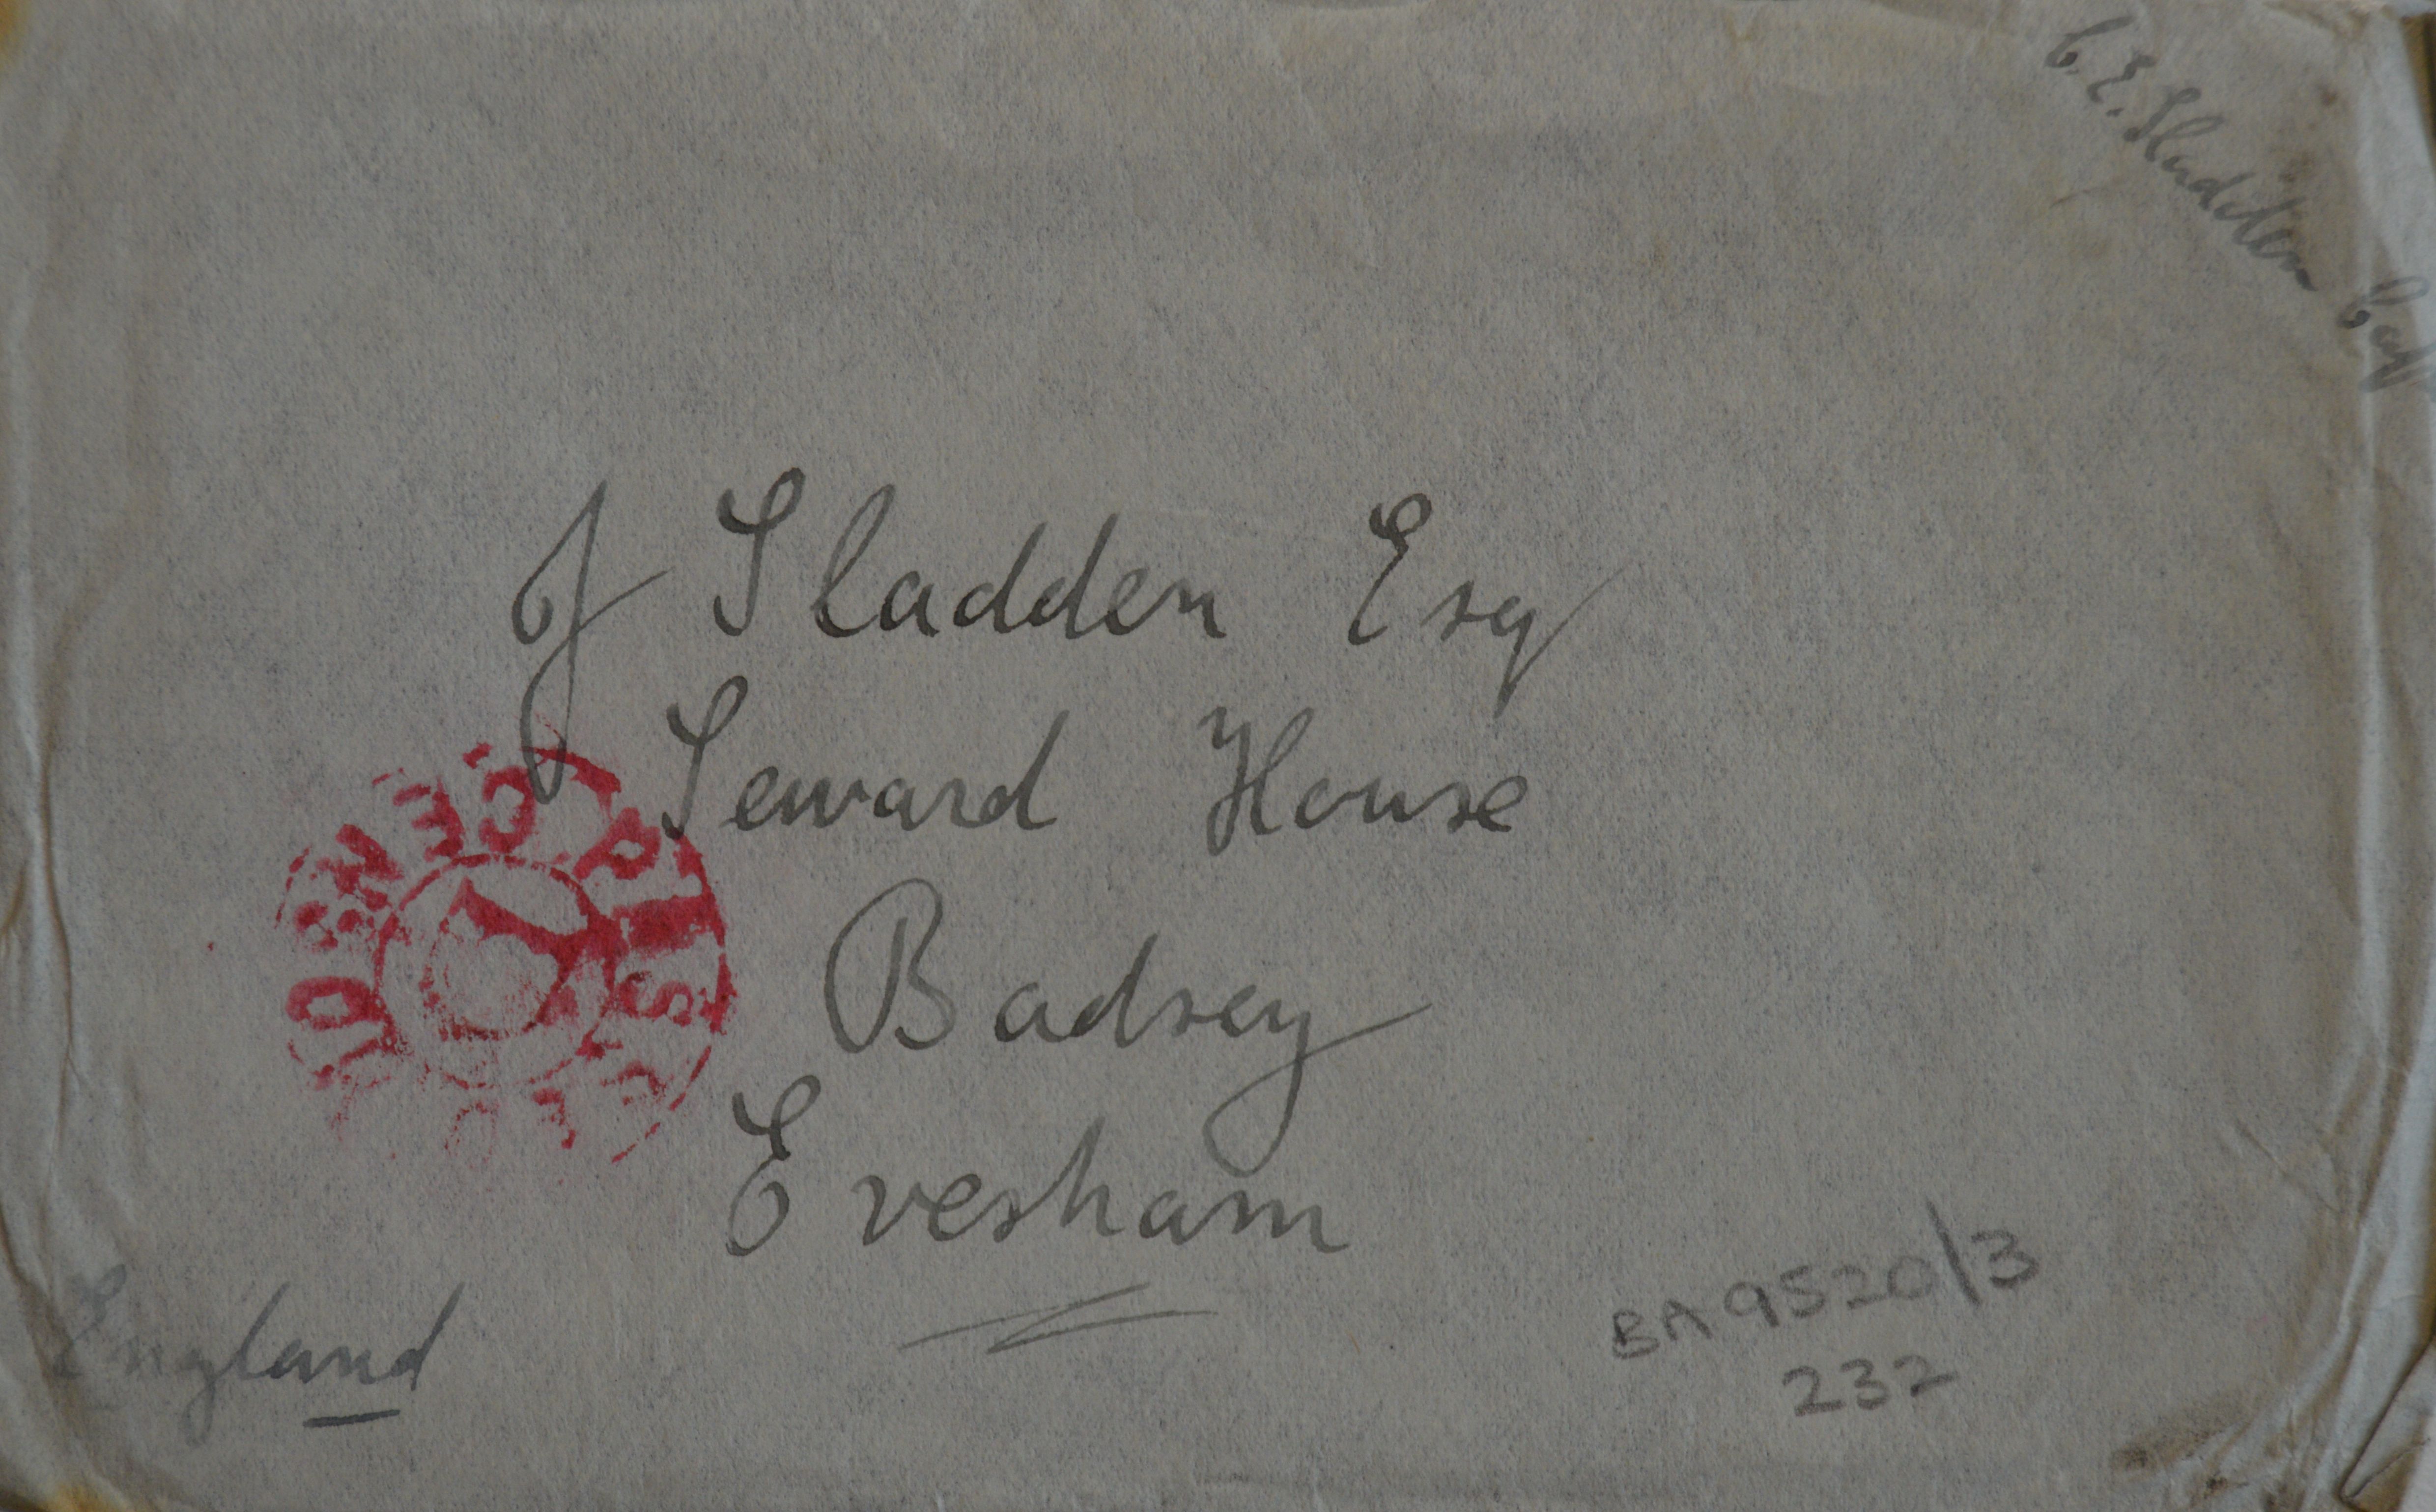 C. E. Sladden Capt
J Sladden Esq
Seward House
Badsey
Evesham
England
CENSOR
BA 9520/3
232